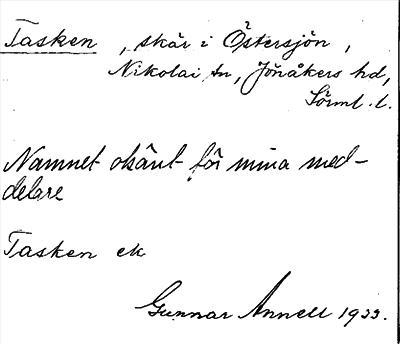 Tasken, skär i Östersjön,
Nikolai sn, Jönåkers hd,
Sörml. l.
Namnet okänt för mina med-
delare
Tasken ek
Gunnar Annell 1933.